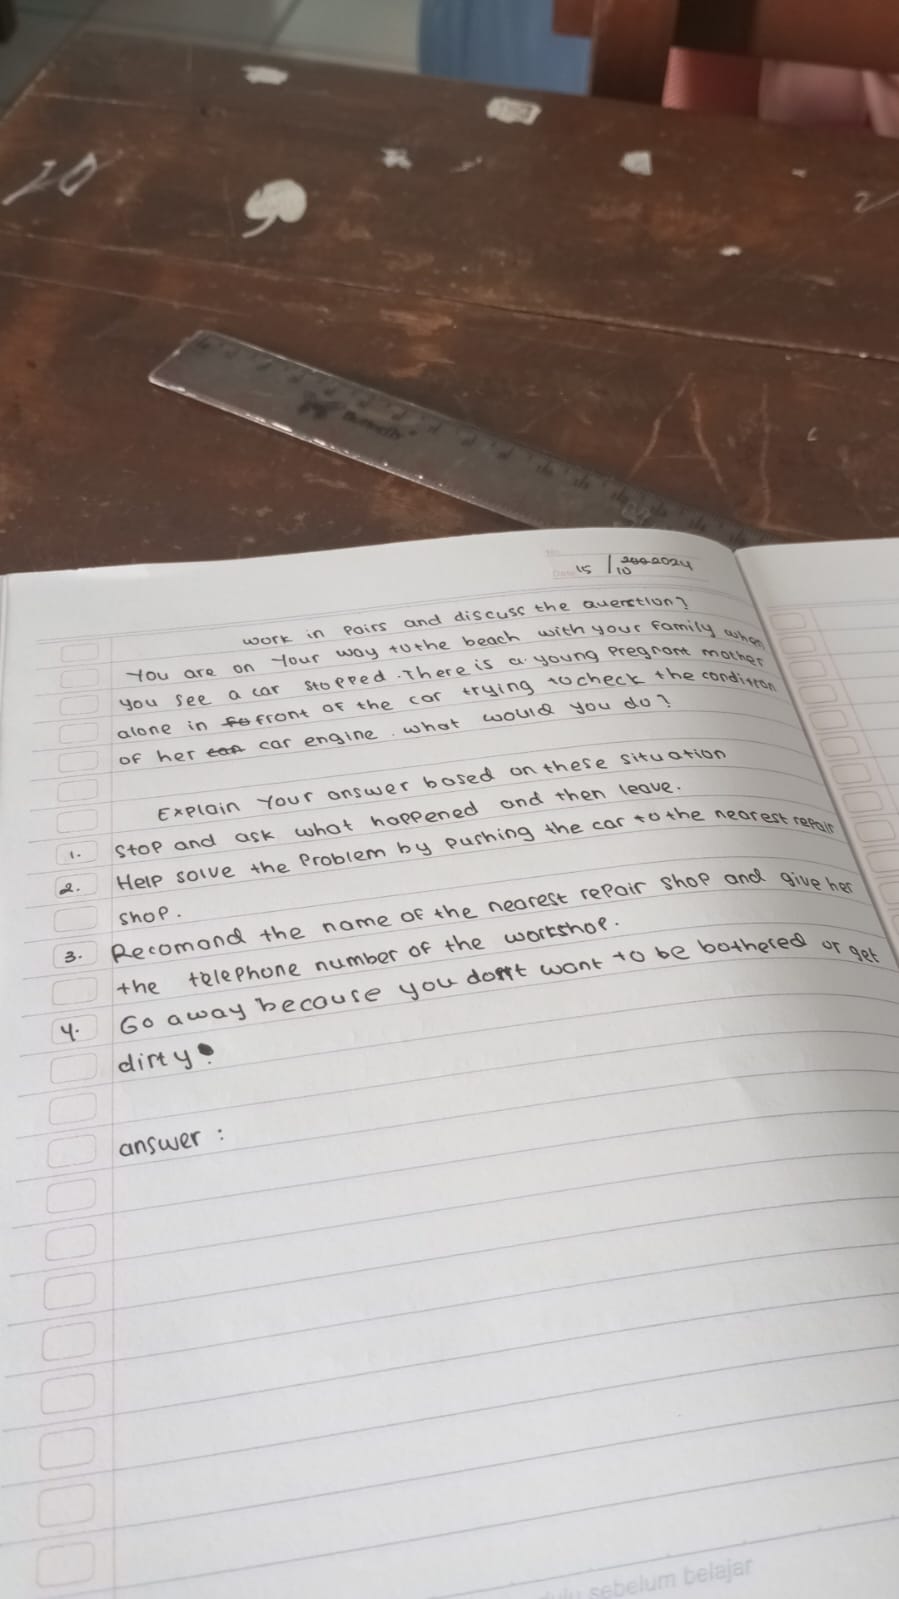 Date 15 / 10 2024
work in Pairs and discuss the question?
You are on Your way to the beach with your family when
you see a car stopped. There is a young pregnant mother
alone in front of the car trying to check the condition
of her car engine. what would you do?
Explain Your answer based on these situation
1. Stop and ask what happened and then leave.
2. Help solve the Problem by pushing the car to the nearest repair
shop.
3. Recomand the name of the nearest repair shop and give her
the telephone number of the workshop.
4. Go away because you don't want to be bothered or get
dirty.
answer :
sebelum belajar